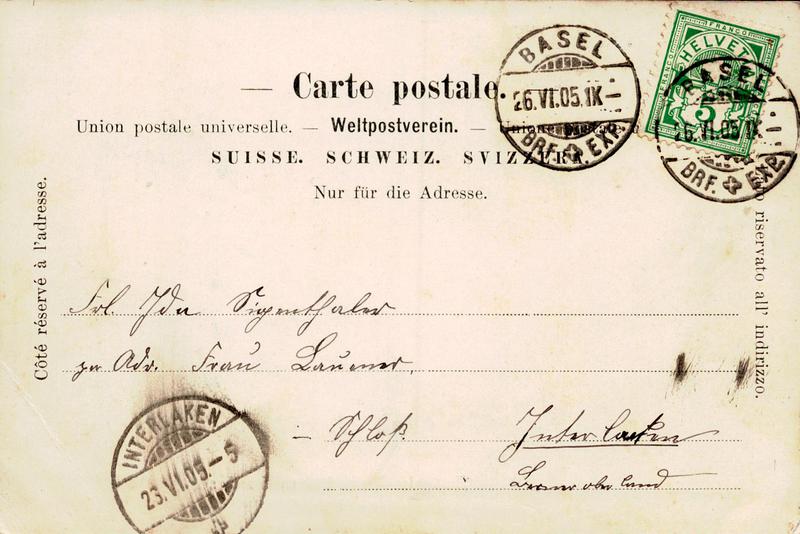 Carte postale.
Union postale universelle. — Weltpostverein. —
SUISSE. SCHWEIZ. SVIZZERA.
Nur für die Adresse.
Côté réservé à l'adresse.
riservato all' indirizzo.
BASEL
26.VI.05.IX—
BRF. EXP.
FRANCO
HELVETIA
5
BASEL
26.VI.05.IX
BRF. EXP.
Frl. Ida Sigenthaler
per Adr. Frau Lauener,
– Schloß Interlaken
Berneroberland
INTERLAKEN
23.VI.05.–5